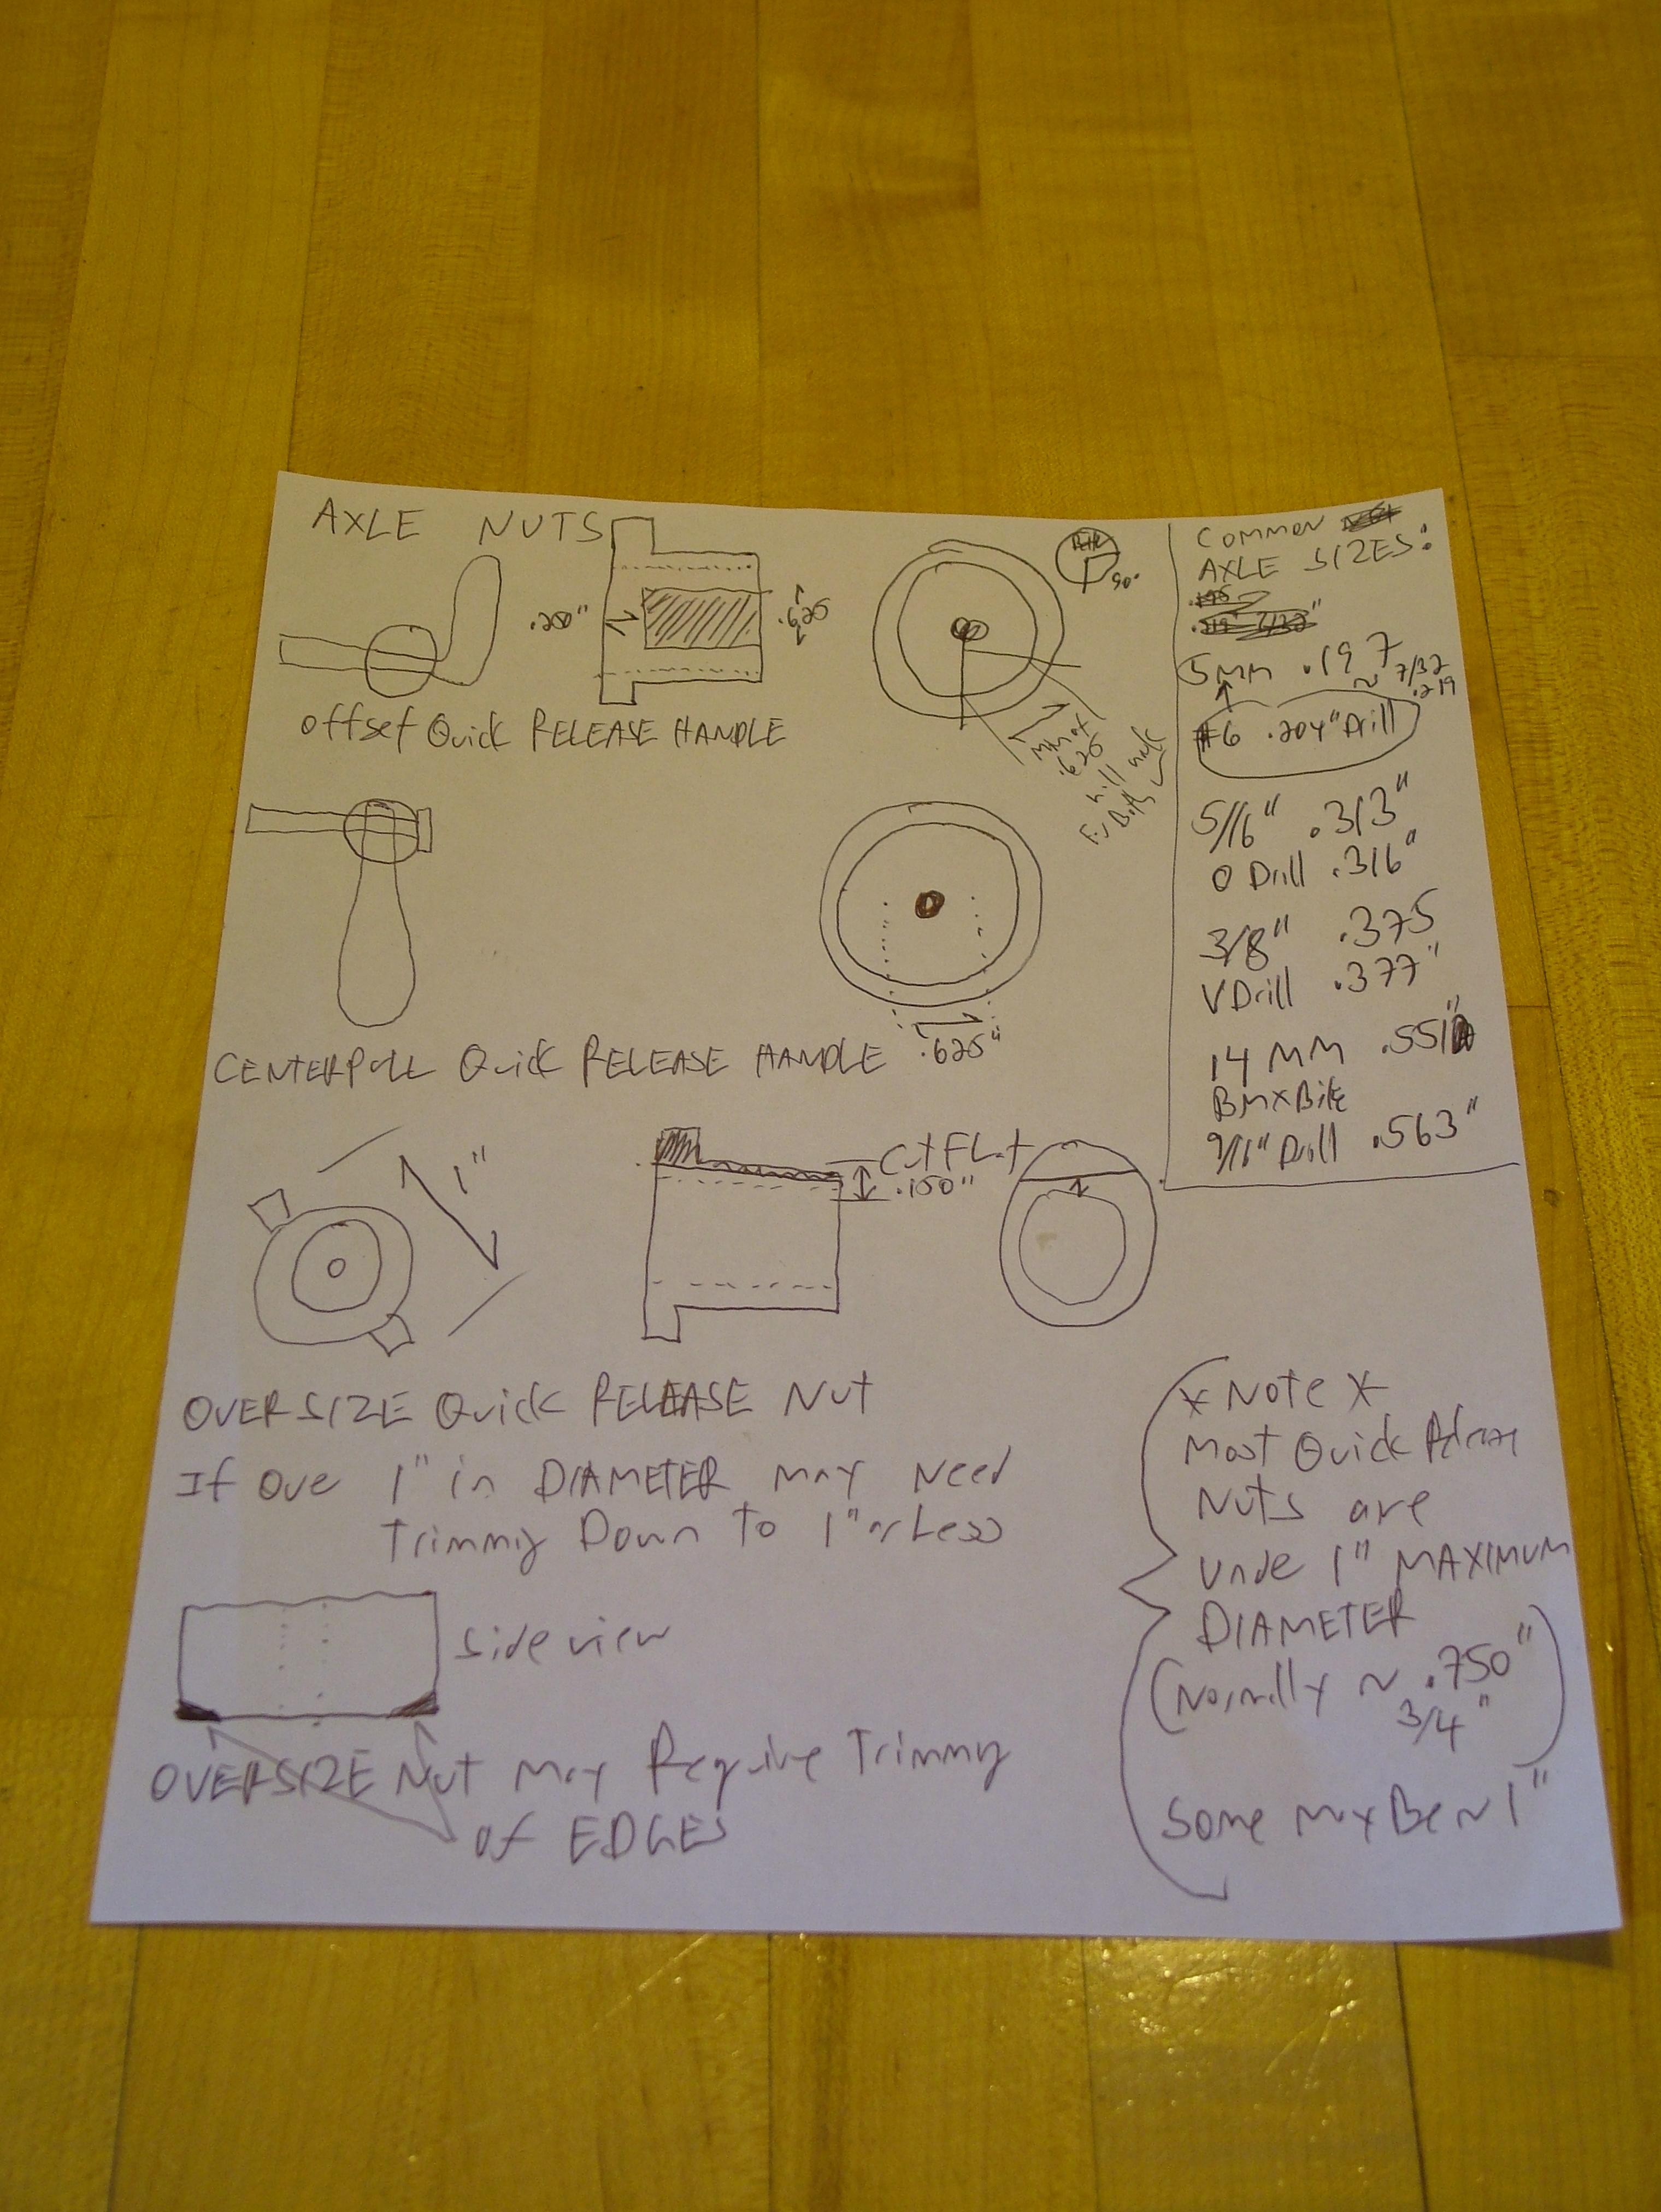 AXLE NUTS
.200"
.625
90°
offset Quick RELEASE HANDLE
max
.625
will work
For Both
CENTERPULL Quick RELEASE HANDLE
.625"
1"
Cut FLat
.150"
OVERSIZE Quick RELEASE Nut
If Over 1" in DIAMETER may Need
Trimming Down To 1" or Less
side view
OVERSIZE Nut May Require Trimming
of EDGES
COMMON
AXLE SIZES:
5MM .197
~ 7/32
.219
#6 .204" Drill
5/16" .313"
O Drill .316"
3/8" .375
V Drill .377"
14 MM .551"
BMX Bike
9/16" Drill .563"
* Note *
Most Quick Release
Nuts are
under 1" MAXIMUM
DIAMETER
(Normally ~ .750"
3/4")
Some may Be ~ 1"